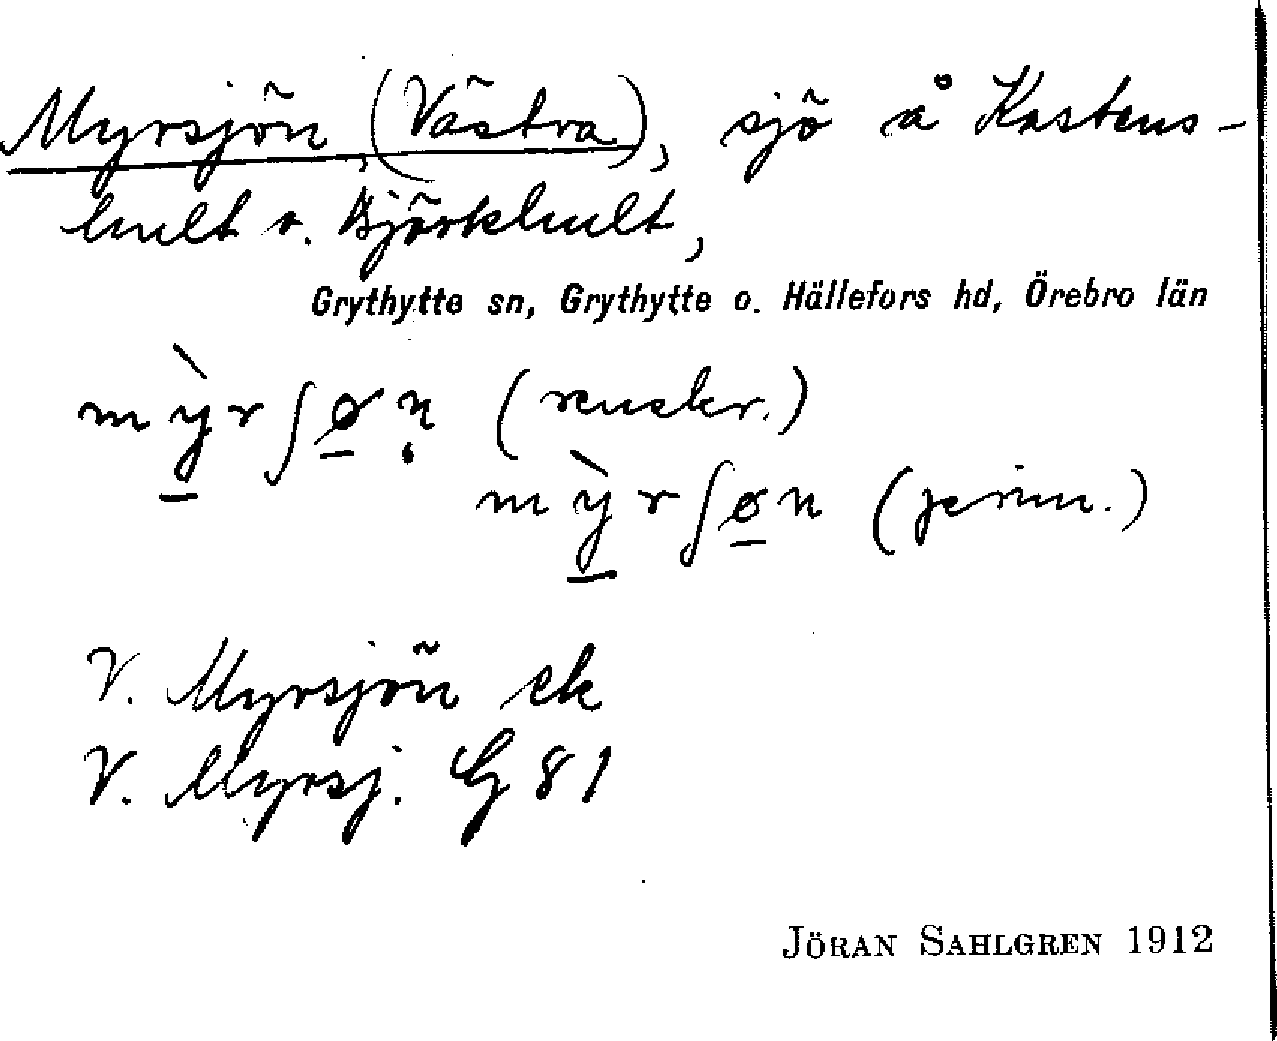 Myrsjön, (Västra), sjö å Kastens-
hult o. Björkhult,
Grythytte sn, Grythytte o. Hällefors hd, Örebro län
mỳrʃøn̥ (renskr.)
mỳrʃøn (primn.)
V. Myrsjön ek
V. Myrsj. G 81
JÖRAN SAHLGREN 1912